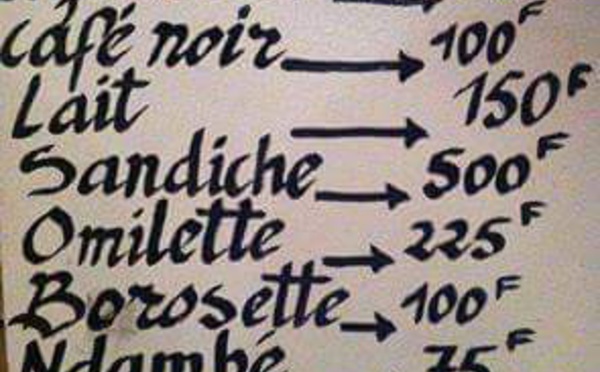 Café noir → 100F
Lait → 150F
Sandiche → 500F
Omilette → 225F
Borosette → 100F
Ndambé 75F